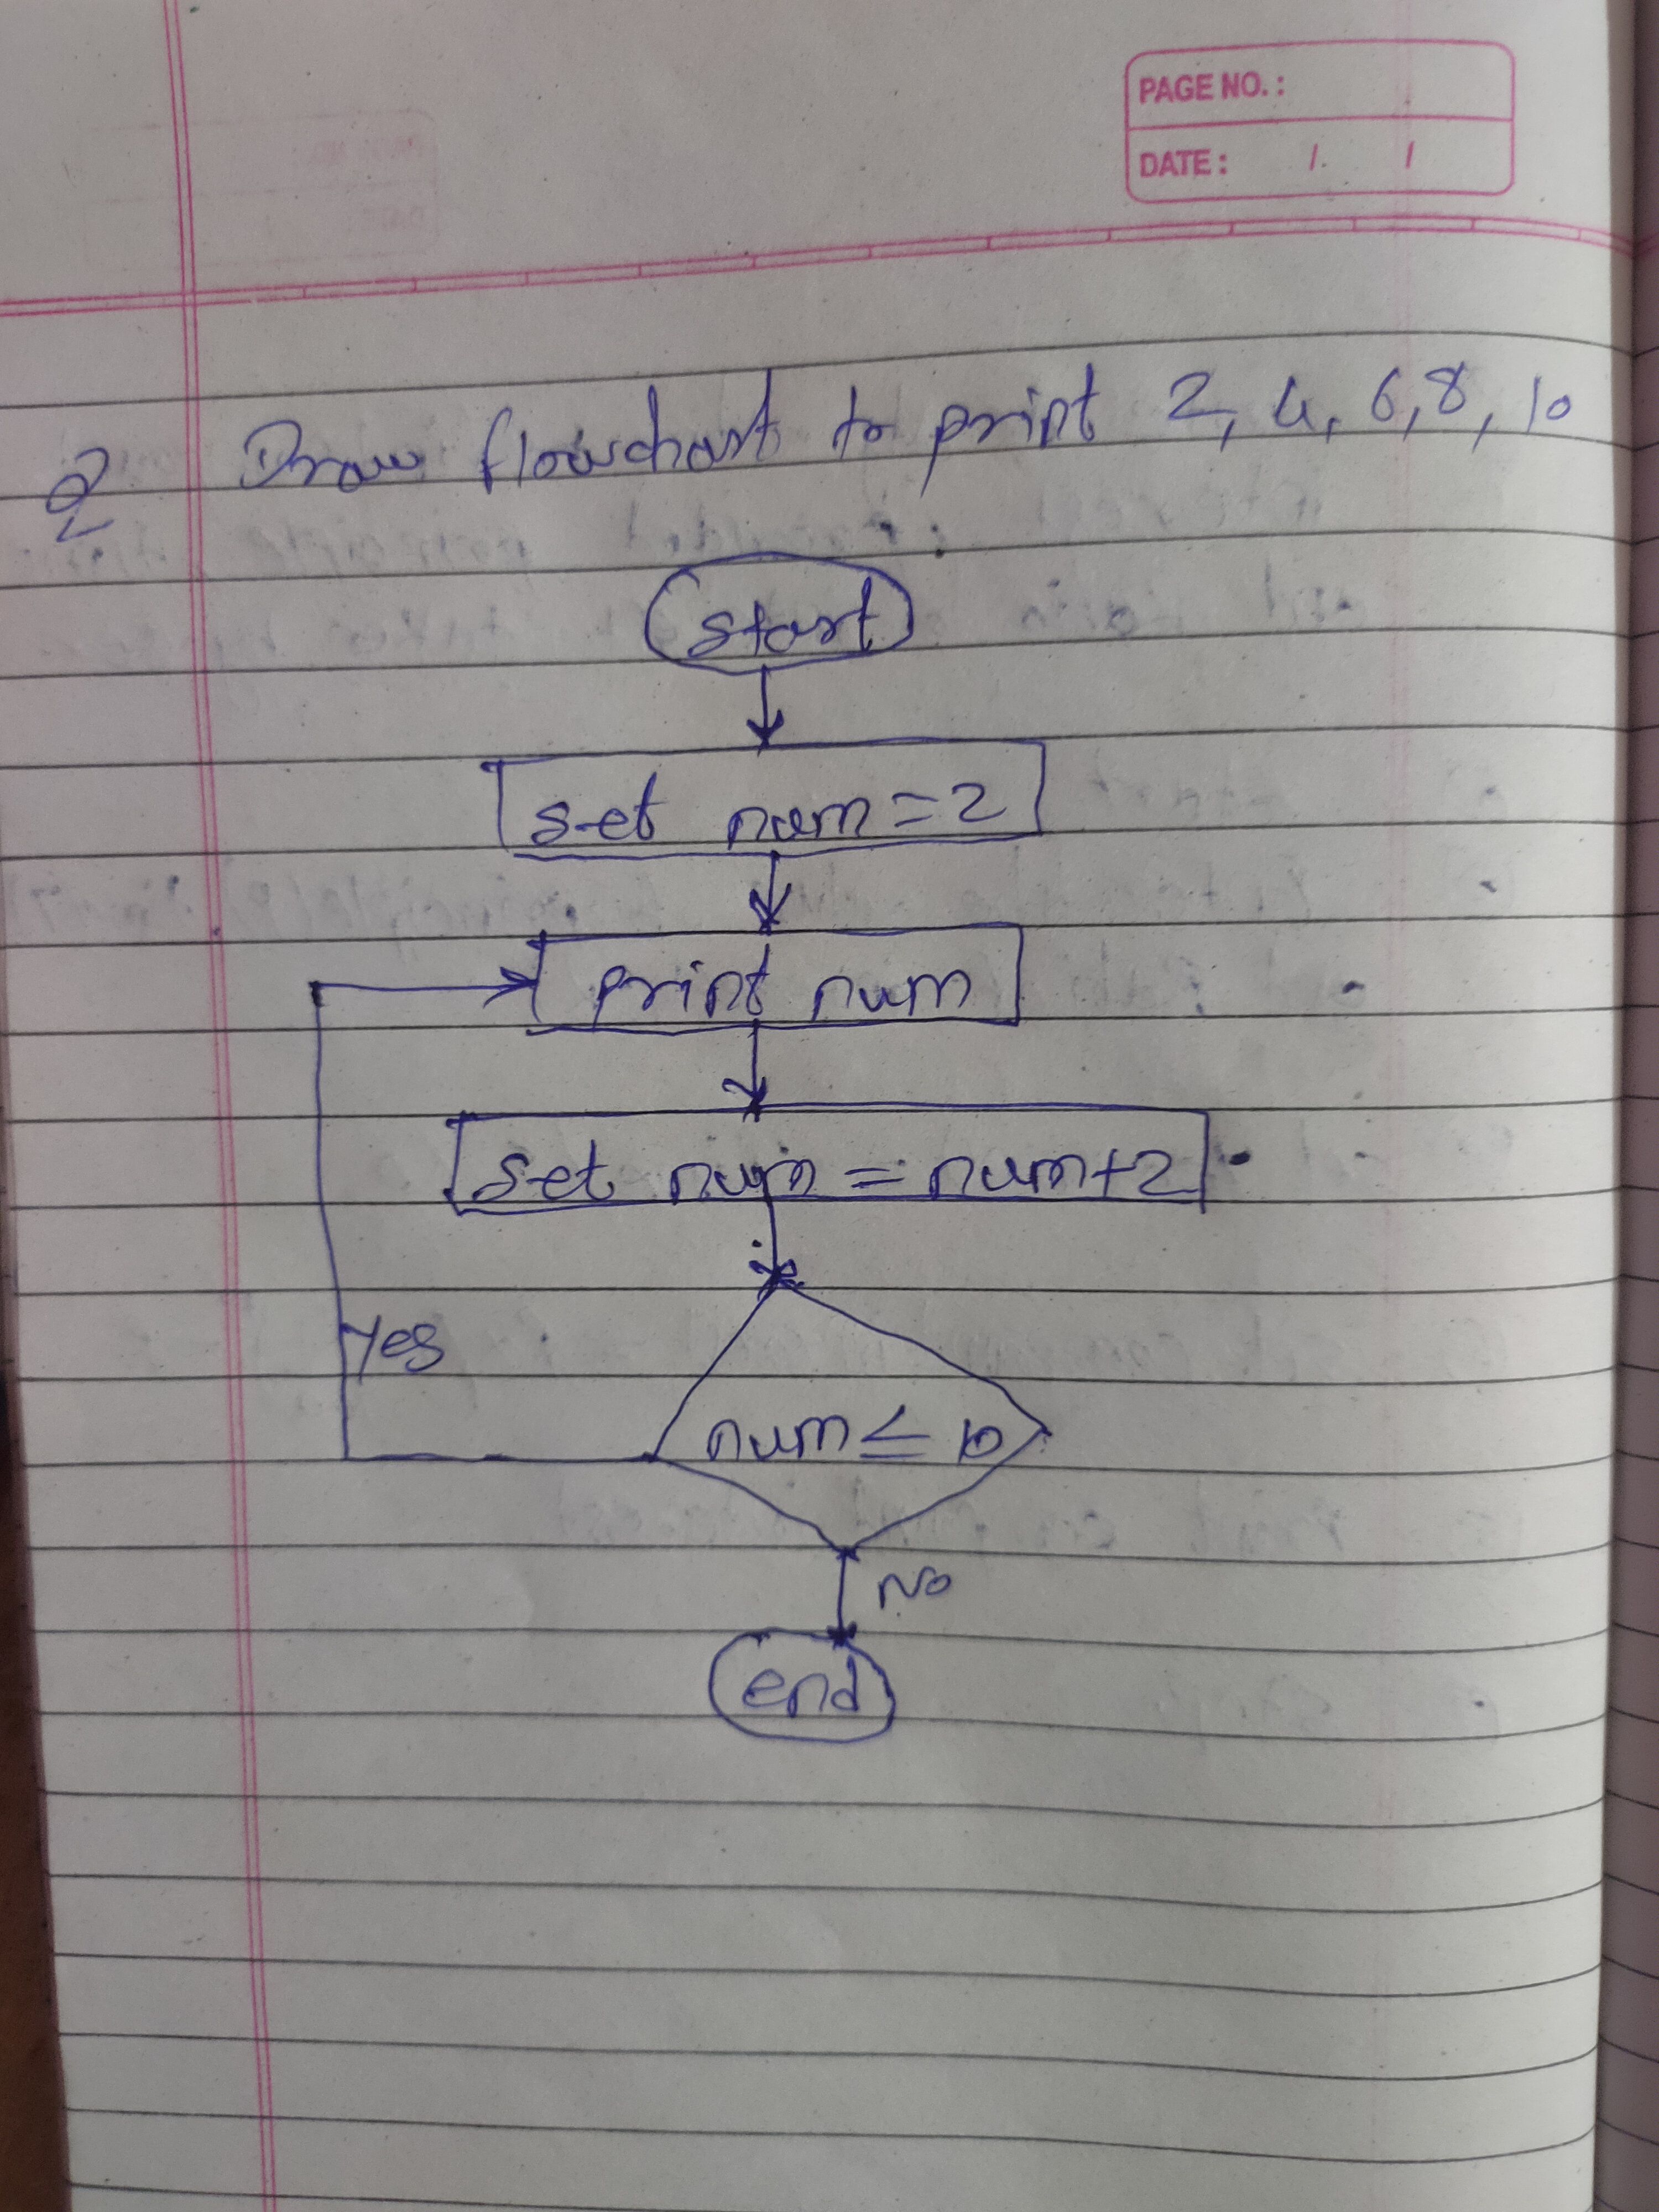 PAGE NO. :
DATE : / /
Q Draw flowchart to print 2, 4, 6, 8, 10
start
set num = 2
print num
set num = num+2
yes
num ≤ 10
No
end